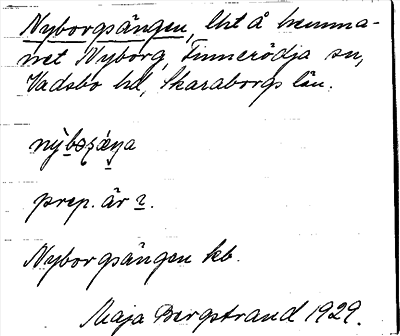 Nyborgsängen, lht å hemma-
net Nyborg, Finnerödja sn,
Vadsbo hd, Skaraborgs län.
prep. är
Nyborgsängen kb.
Maja Bergstrand 1929.